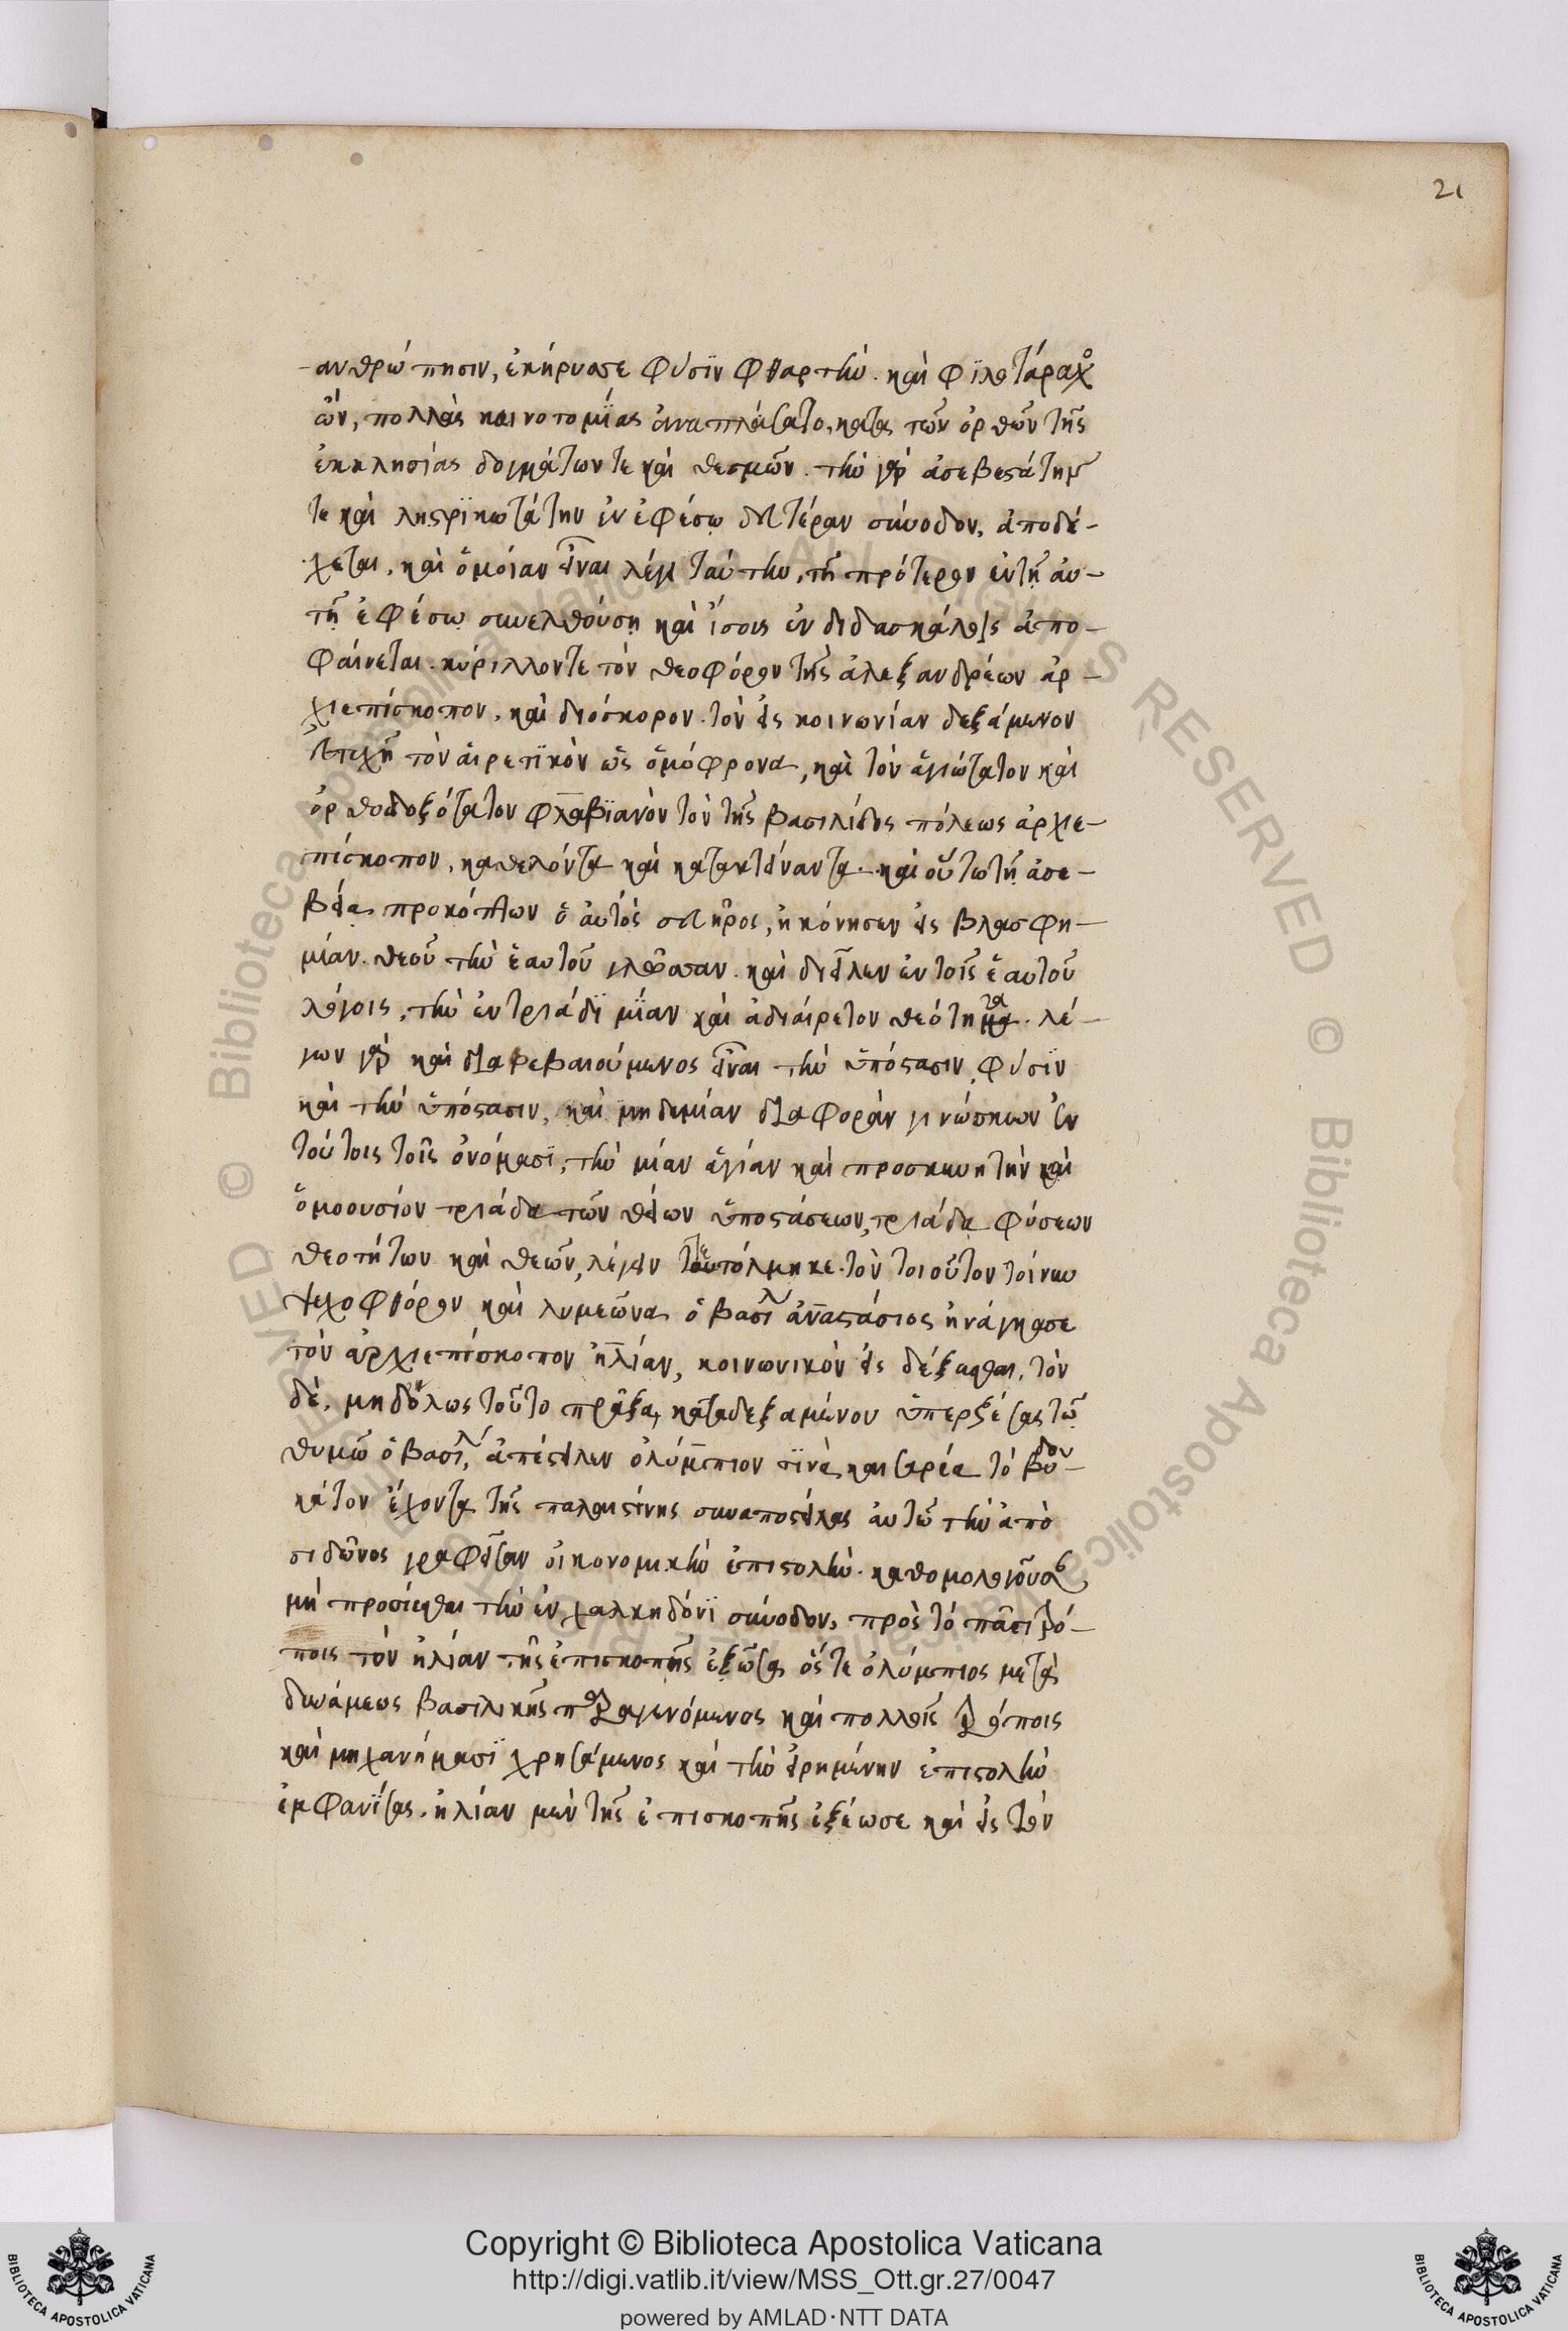 21
ανθρώπησιν, ἐκήρυσσε φύσϊν φθαρτὴν. καὶ φϊλοτάραχος
ὢν, πολλὰς καινοτομΐας ἀναπλάσατο, κατα τῶν ὀρθῶν τῆς
ἐκκλησίας δογμάτων τε καὶ θεσμῶν. τὴν γὰρ ἀσεβεστάτην
τε καὶ ληστρϊκωτάτην ἐν ἐφέσω δευτέραν σύνοδον, ἀποδέ-
χεται, καὶ ὅμοίαν εἶναι λέγει ταύτην, τῆ πρότερον ἐν τῆ αὐ-
τῆ ἐφέσω συνελθούση καὶ ἴσοις ἐν διδασκάλοις ἀπο-
φαίνεται. κύριλλον τε τὸν θεοφόρον τῆς ἀλεξανδρέων ἀρ-
χιεπίσκοπον, καὶ διόσκορον. τὸν εἰς κοινωνίαν δεξάμενον
εὐτυχῆ τὸν αἱρετϊκὸν ὡς ὅμόφρονα, καὶ τὸν ἁγιώτατον καὶ
ὀρθοδοξότατον φλαβϊανὸν τὸν τῆς βασιλίδος πόλεως ἀρχιε-
πίσκοπον, καθελόντα καὶ κατακτείναντα. καὶ οὕτω τῆ ἀσε-
βεία προκόπτων ὁ αὐτὸς σευῆρος, ἠκόνησεν εἰς βλασφη-
μίαν θεοῦ τὴν ἑαυτοῦ γλῶσσαν. καὶ διεῖλεν ἐν τοῖς ἑαυτοῦ
λόγοις, τὴν ἐν τριάδϊ μΐαν καὶ ἀδιαίρετον θεότητα. λέ-
γων γὰρ καὶ διαβεβαιούμενος εἶναι τὴν ὑπόστασιν, φύσϊν
καὶ τὴν ὑπόστασιν, καὶ μηδεμίαν διαφορὰν γινώσκων ἐν
τούτοις τοῖς ὀνόμασϊ, τὴν μίαν ἁγίαν καὶ προσκυνητὴν καὶ
ὅμοουσίον τριάδα τῶν θείων ὑποστάσεων, τριάδα φύσεων
θεοτήτων καὶ θεῶν, λέγειν τετόλμηκε. τὸν τοιοῦτον τοίνυν
ψυχοφθόρον καὶ λυμεῶνα ὁ βασιλ ἀναστάσιος ἠνάγκασε
τὸν ἀρχιεπίσκοπον ἠλίαν, κοινωνικὸν εἰς δέξασθαι, τὸν
δὲ, μηδόλως τοῦτο πρᾶξαι καταδεξαμένου ὑπερζέσας τῶ
θυμῶ ὁ βασιλ, ἀπέστειλεν ὀλύμπιον τϊνὰ καισαρέα τὸ δου-
κάτον ἔχοντα τῆς παλαιστίνης συναποστείλας ἀυτῶ τὴν ἀπὸ
σιδῶνος γραφεῖσαν οἰκονομικὴν ἐπιστολὴν. καθομολογοῦσαν
μὴ προσίεσθαι τὴν ἐν χαλκηδόνϊ σύνοδον, πρὸς τὸ πᾶσι τρό-
ποις τὸν ἠλίαν τῆς ἐπισκοπῆς ἐξῶσαι ὅς τε ὀλύμπιος μετὰ
δυνάμεως βασιλικῆς παραγενόμενος καὶ πολλοῖς τρόποις
καὶ μηχανήμασϊ χρησάμενος καὶ τὴν εἰρημένην ἐπιστολὴν
ἐμφανΐσας. ἠλίαν μὲν τῆς ἐπισκοπῆς ἐξέωσε καὶ εἰς τὸν
Copyright © Biblioteca Apostolica Vaticana
http://digi.vatlib.it/view/MSS_Ott.gr.27/0047
powered by AMLAD·NTT DATA